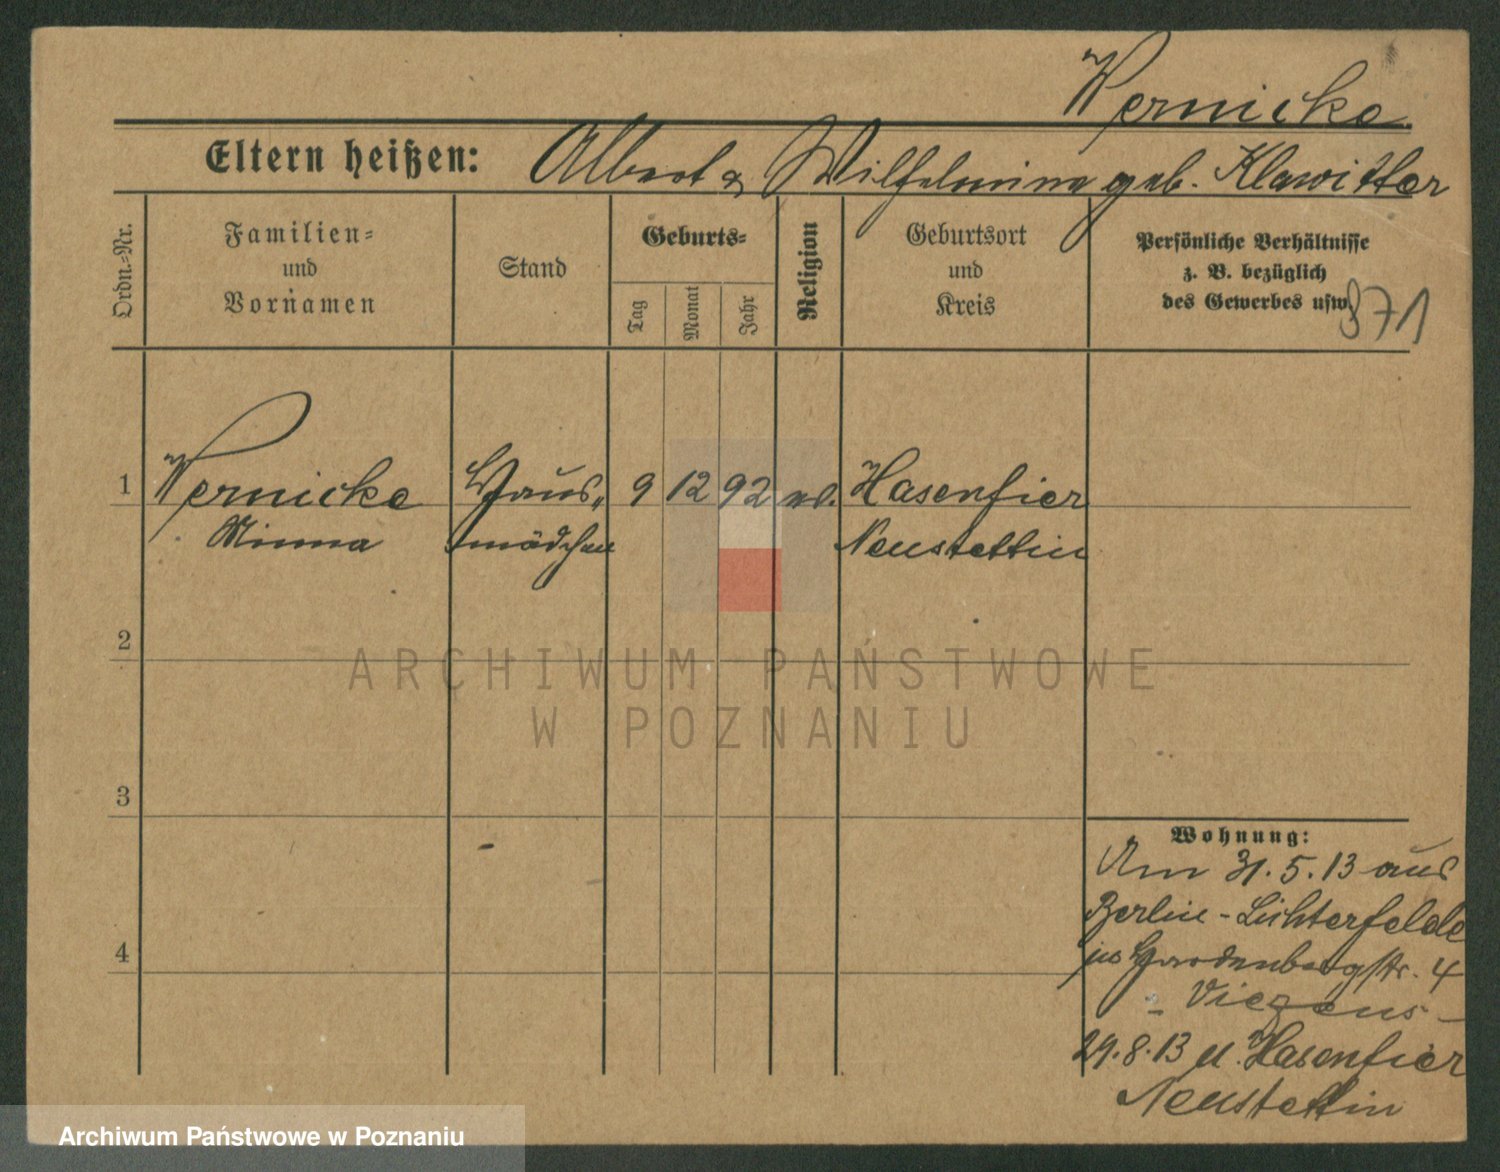 Wernicke.
Eltern heißen: Albert & Wilhelmine geb. Klawitter
Ordn.-Nr.
Familien-
und
Vornamen
Stand
Geburts-
Tag
Monat
Jahr
Religion
Geburtsort
und
Kreis
Persönliche Verhältnisse
z. B. bezüglich
des Gewerbes usw.
871
1 Wernicke Haus- 9 12 92 ev. Hasenfier
Minna mädchen Neustettin
2
3
4
Wohnung:
Am 31.5.13 aus
Berlin-Lichterfelde
in Hardenbergstr. 4
29.8.13 n. Hasenfier
Neustettin
ARCHIWUM PAŃSTWOWE
W POZNANIU
Archiwum Państwowe w Poznaniu